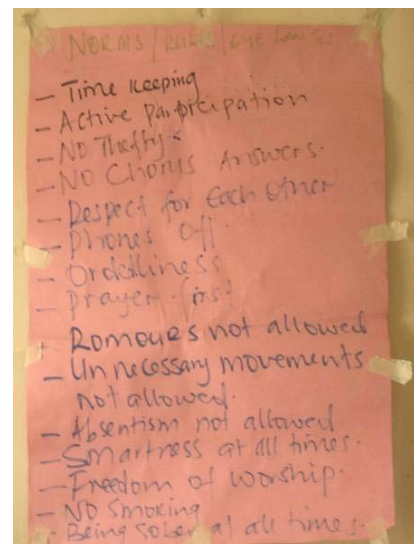 NORMS/RULES/BYE LAWS:
- Time Keeping
- Active Participation
- NO Thefty
- NO Chorus Answers.
- Respect for Each Other
- Phones Off.
- Orderliness
- Prayer first
- Romoures not allowed
- Un necessary movements
not allowed.
- Absentism not allowed
- Smartness at all times.
- Freedom of worship.
- NO Smoking
- Being Sober at all times.